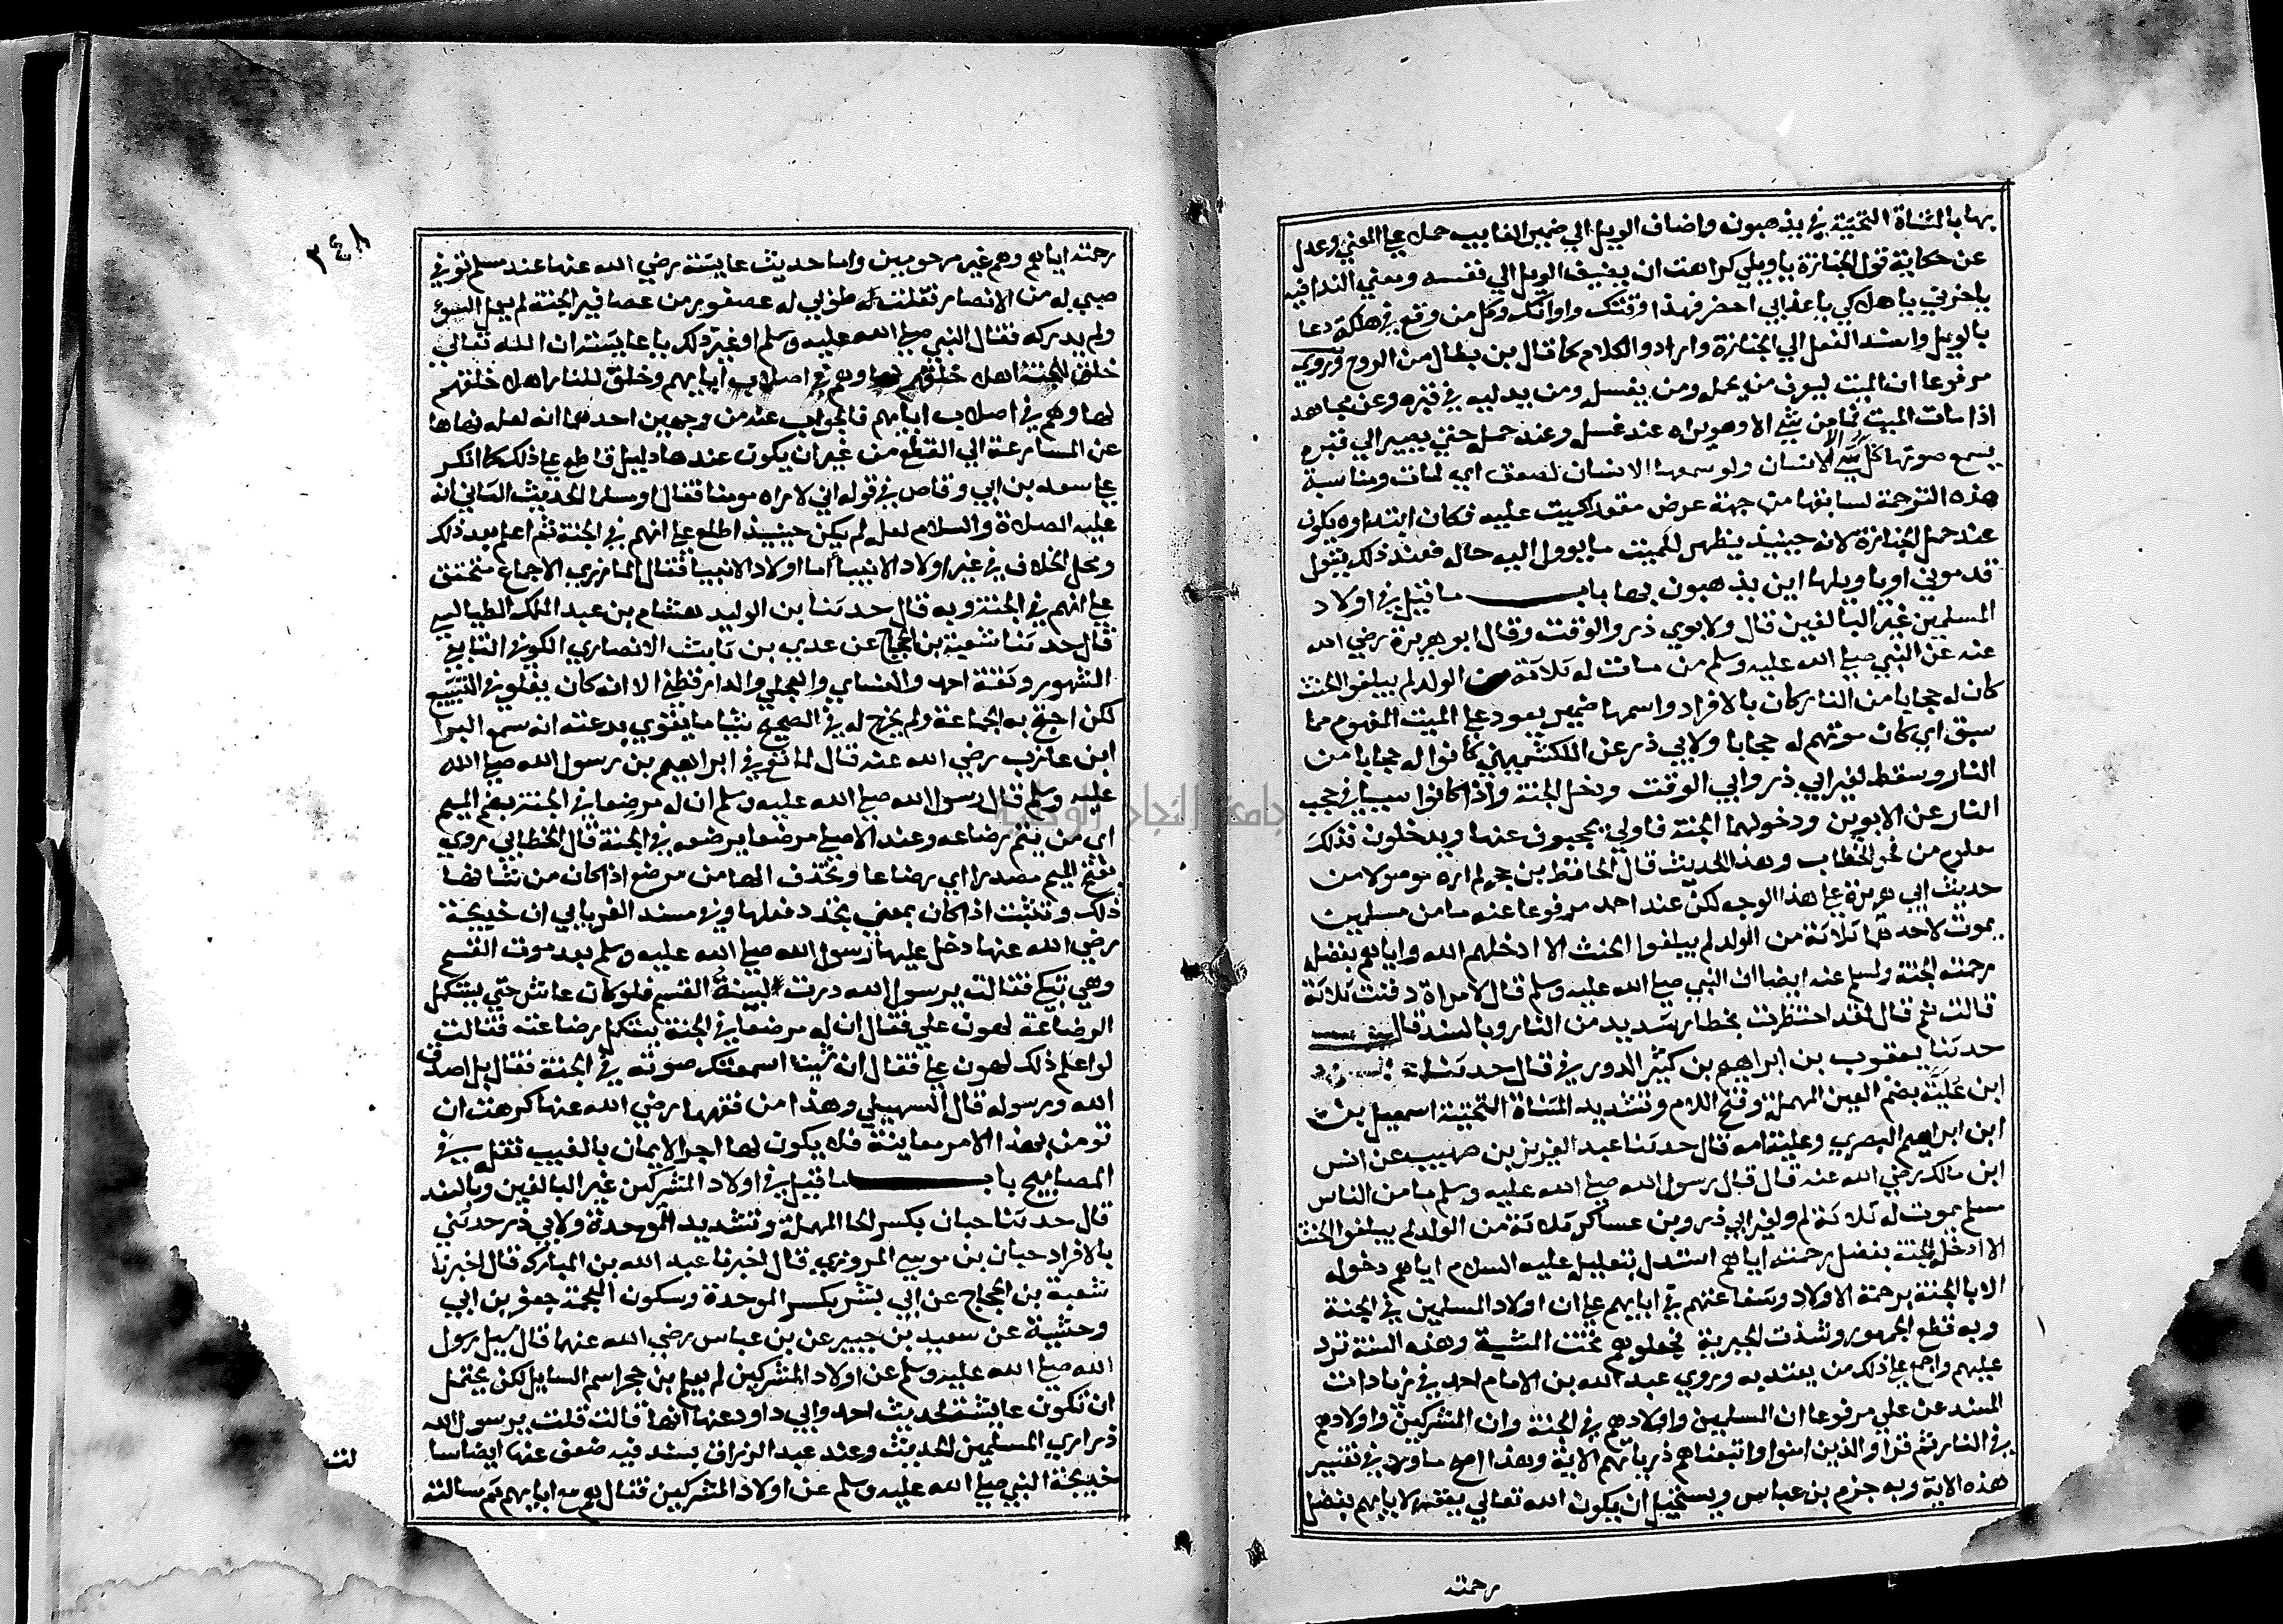 بها بالمثناة التحتية في يذهبون واضاف الويل الي ضمير الغايب حملا علي المعني وعدل
عن حكاية قول الجنازة يا ويلي كراهت ان يضيف الويل الي نفسه ومعني الندا فيه
يا حزني يا هلاكي يا عذابي احضر فهذا وقتك واوانك وكل من وقع في هلكة دعا
بالويل واسند الفعل الي الجنازة واراد والكلام كما قال بن بطال من الروح وروي
مرفوعا ان الميت ليعرف من يحمله ومن يغسله ومن يدليه في قبره وعن مجاهد
اذا مات الميت فما من شي الا وهو يراه عند غسله وعند حمله حتي يصير الي قبره
يسمع صوتها كل شي الا الانسان ولو سمعها الانسان لصعق اي لمات ومناسبة
هذه الترجمة لسابقها من جهة عرض مقعد الميت عليه فكان ابتداوه يكون
عند حمل الجنازة لانه حينيذ يظهر للميت ما يوول اليه حاله فعند ذلك يقول
قدموني او يا ويلها اين يذهبون بها باب ما قيل في اولاد
المسلمين غير البالغين قال ولابوي ذر والوقت وقال ابو هريرة رضي الله
عنه عن النبي صلي الله عليه وسلم من مات له ثلاثة من الولد لم يبلغوا الحنث
كان له حجابا من النار كان بالافراد واسمها ضمير يعود علي الميت المفهوم مما
سبق اي كان موتهم له حجابا ولابي ذر عن الكشميهني كانوا له حجابا من
النار وسقط لغير ابي ذر وابي الوقت ودخل الجنة واذا كانوا سببا في حجب
النار عن الابوين ودخولهما الجنة فاولي يحجبون عنها ويدخلون فذلك
معلوم من فحوي الخطاب وهذا الحديث قال الحافظ بن حجر لم اره موصولا من
حديث ابي هريرة علي هذا الوجه لكن عند احمد مرفوعا عنه ما من مسلمين
يموت لاحدهما ثلاثة من الولد لم يبلغوا الحنث الا ادخلهم الله واياهم بفضل
رحمته الجنة ولمسلم عنه ايضا ان النبي صلي الله عليه وسلم قال لامراة دفنت ثلاثة
قالت نعم قال لقد احتظرت بحظار شديد من النار وبالسند قال
حدثنا يعقوب بن ابراهيم بن كثير الدورقي قال حدثنا
ابن علية بضم العين المهملة وفتح اللام وتشديد المثناة التحتية اسمعيل بن
ابن ابراهيم البصري وعلية امه قال حدثنا عبد العزيز بن صهيب عن انس
ابن مالك رضي الله عنه قال قال رسول الله صلي الله عليه وسلم ما من الناس
مسلم يموت له ثلاثة لم ولغير ابي ذر وبن عساكر ثلاثة من الولد لم يبلغوا الحنث
الا ادخل الجنة بفضل رحمته اياهم استدل بتعليل عليه السلام اياهم دخوله
الابا الجنة برحمة الاولاد وشفاعتهم في ابايهم علي ان اولاد المسلمين في الجنة
وبه قطع الجمهور وشذت الجبرية فجعلوهم تحت المشية وهذه السنة ترد
عليهم واجمع علي ذلك من يعتد به وروي عبد الله بن الامام احمد في زيادات
المسند عن علي مرفوعا ان المسلمين واولادهم في الجنة وان المشركين واولادهم
في النار ثم قرا والذين امنوا واتبعناهم ذرياتهم الاية وهذا اصح ما ورد في تفسير
هذه الاية وبه جزم بن عباس ويستحيل ان يكون الله تعالي يغفر لابايهم بفضل
رحمته
٣٤٨
رحمته اياهم وهم غير مرحومين واما حديث عايشة رضي الله عنها عند مسلم توفي
صبي له من الانصار فقلت له طوبي له عصفور من عصافير الجنة لم يعمل السوء
ولم يدركه فقال النبي صلي الله عليه وسلم او غير ذلك يا عايشة ان الله تعالي
خلق للجنة اهلا خلقهم لها وهم في اصلاب ابايهم وخلق للنار اهلا خلقهم
لها وهم في اصلاب ابايهم فالجواب عنه من وجهين احدهما انه لعله نهاها
عن المسارعة الي القطع من غير ان يكون عندها دليل قاطع علي ذلك كما انكر
علي سعد بن ابي وقاص في قوله اني لاراه مومنا فقال او مسلما الحديث الثاني انه
عليه الصلاة والسلام لعله لم يكن حينيذ اطلع علي انهم في الجنة ثم اعلم بعد ذلك
ومحل الخلاف في غير اولاد الانبيا اما اولاد الانبيا فقال المازري الاجماع متحقق
علي انهم في الجنة وبه قال حدثنا بن الوليد هشام بن عبد الملك الطيالسي
قال حدثنا شعبة بن الحجاج عن عدي بن ثابت الانصاري الكوفي التابعي
المشهور وثقة احمد والنساي والعجلي والدارقطني الا انه كان يغلوا في التشيع
لكن احتج به الجماعة ولم يخرج له في الصحيح شيا ما يقوي بدعته انه سمع البرا
ابن عازب رضي الله عنه قال لما توفي ابراهيم بن رسول الله صلي الله
عليه وسلم قال رسول الله صلي الله عليه وسلم ان له مرضعا في الجنة بضم الميم
اي من يتم رضاعه وعند الاصيلي مرضعا يرضعه في الجنة قال الخطابي روي
بفتح الميم مصدرا اي رضاعا وتحذف الها من مرضع اذا كان من شانها
ذلك وتثبت اذا كان بمعني تجدد فعلها وفي مسند الفريابي ان خديجة
رضي الله عنها دخل عليها رسول الله صلي الله عليه وسلم بعد موت القسم
وهي تبكي فقالت يرسول الله درت لبينة القسم فلو كان عاش حتي يستكمل
الرضاعة لهون علي فقال ان له مرضعا في الجنة يستكمل رضاعته فقالت
لو اعلم ذلك لهون علي فقال ان شيت اسمعتك صوته في الجنة فقال بل اصدق
الله ورسوله قال السهيلي وهذا من فقهها رضي الله عنها كرهت ان
تومن بهذا الامر معاينة فلا يكون لها اجر الايمان بالغيب نقله في
المصابيح باب ما قيل في اولاد المشركين غير البالغين وبالسند
قال حدثنا حبان بكسر الحا المهملة وتشديد الموحدة ولابي ذر حدثني
بالافراد حبان بن موسي المروزي قال اخبرنا عبد الله بن المبارك قال اخبرنا
شعبة بن الحجاج عن ابي بشر بكسر الموحدة وسكون المعجمة جعفر بن ابي
وحشية عن سعيد بن جبير عن بن عباس رضي الله عنهما قال سيل رسول
الله صلي الله عليه وسلم عن اولاد المشركين لم يعلم بن حجر اسم السايل لكن يحتمل
ان تكون عايشة لحديث احمد وابي داود عنها انها قالت قلت يرسول الله
ذراري المسلمين الحديث وعند عبد الرزاق بسند فيه ضعف عنها ايضا سا
خديجة النبي صلي الله عليه وسلم عن اولاد المشركين فقال هم مع ابايهم ثم سالته
لت
جامعة النجاح الوطنية